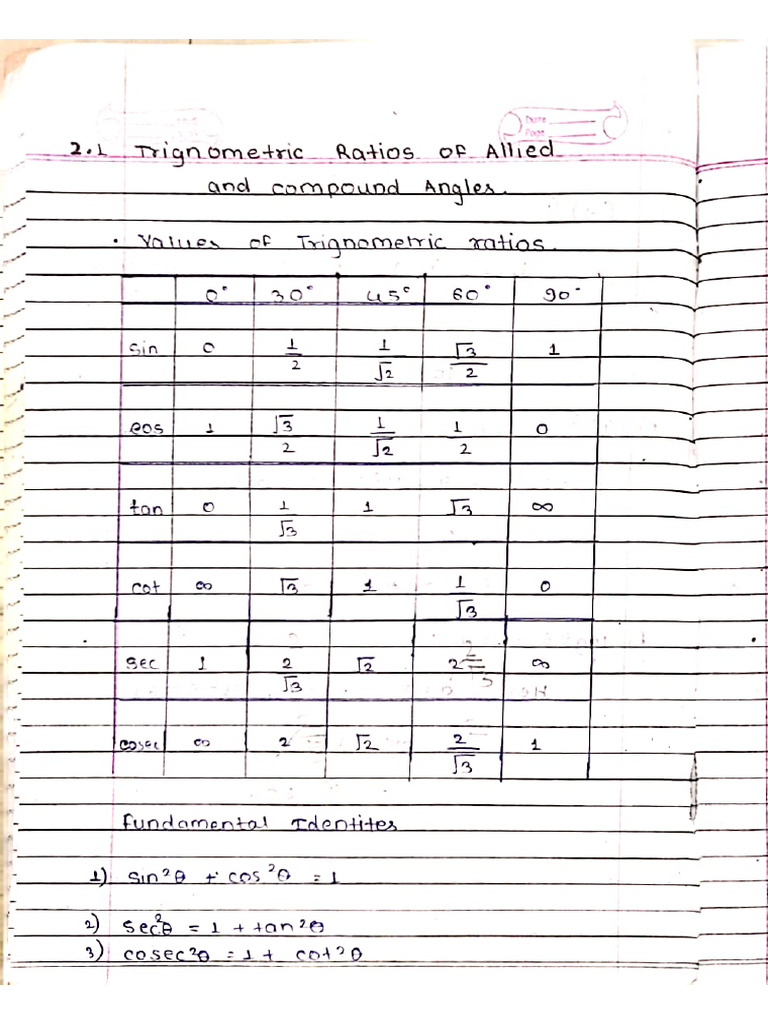 Date
Page
2.1 Trignometric Ratios of Allied
and compound Angles.
• Values of Trignometric ratios.
0° 30° 45° 60° 90°
sin 0 1/2 1/√2 √3/2 1
cos 1 √3/2 1/√2 1/2 0
tan 0 1/√3 1 √3 ∞
cot ∞ √3 1 1/√3 0
sec 1 2/√3 √2 2 ∞
cosec ∞ 2 √2 2/√3 1
Fundamental Identites
1) sin²θ + cos²θ = 1
2) sec²θ = 1 + tan²θ
3) cosec²θ = 1 + cot²θ